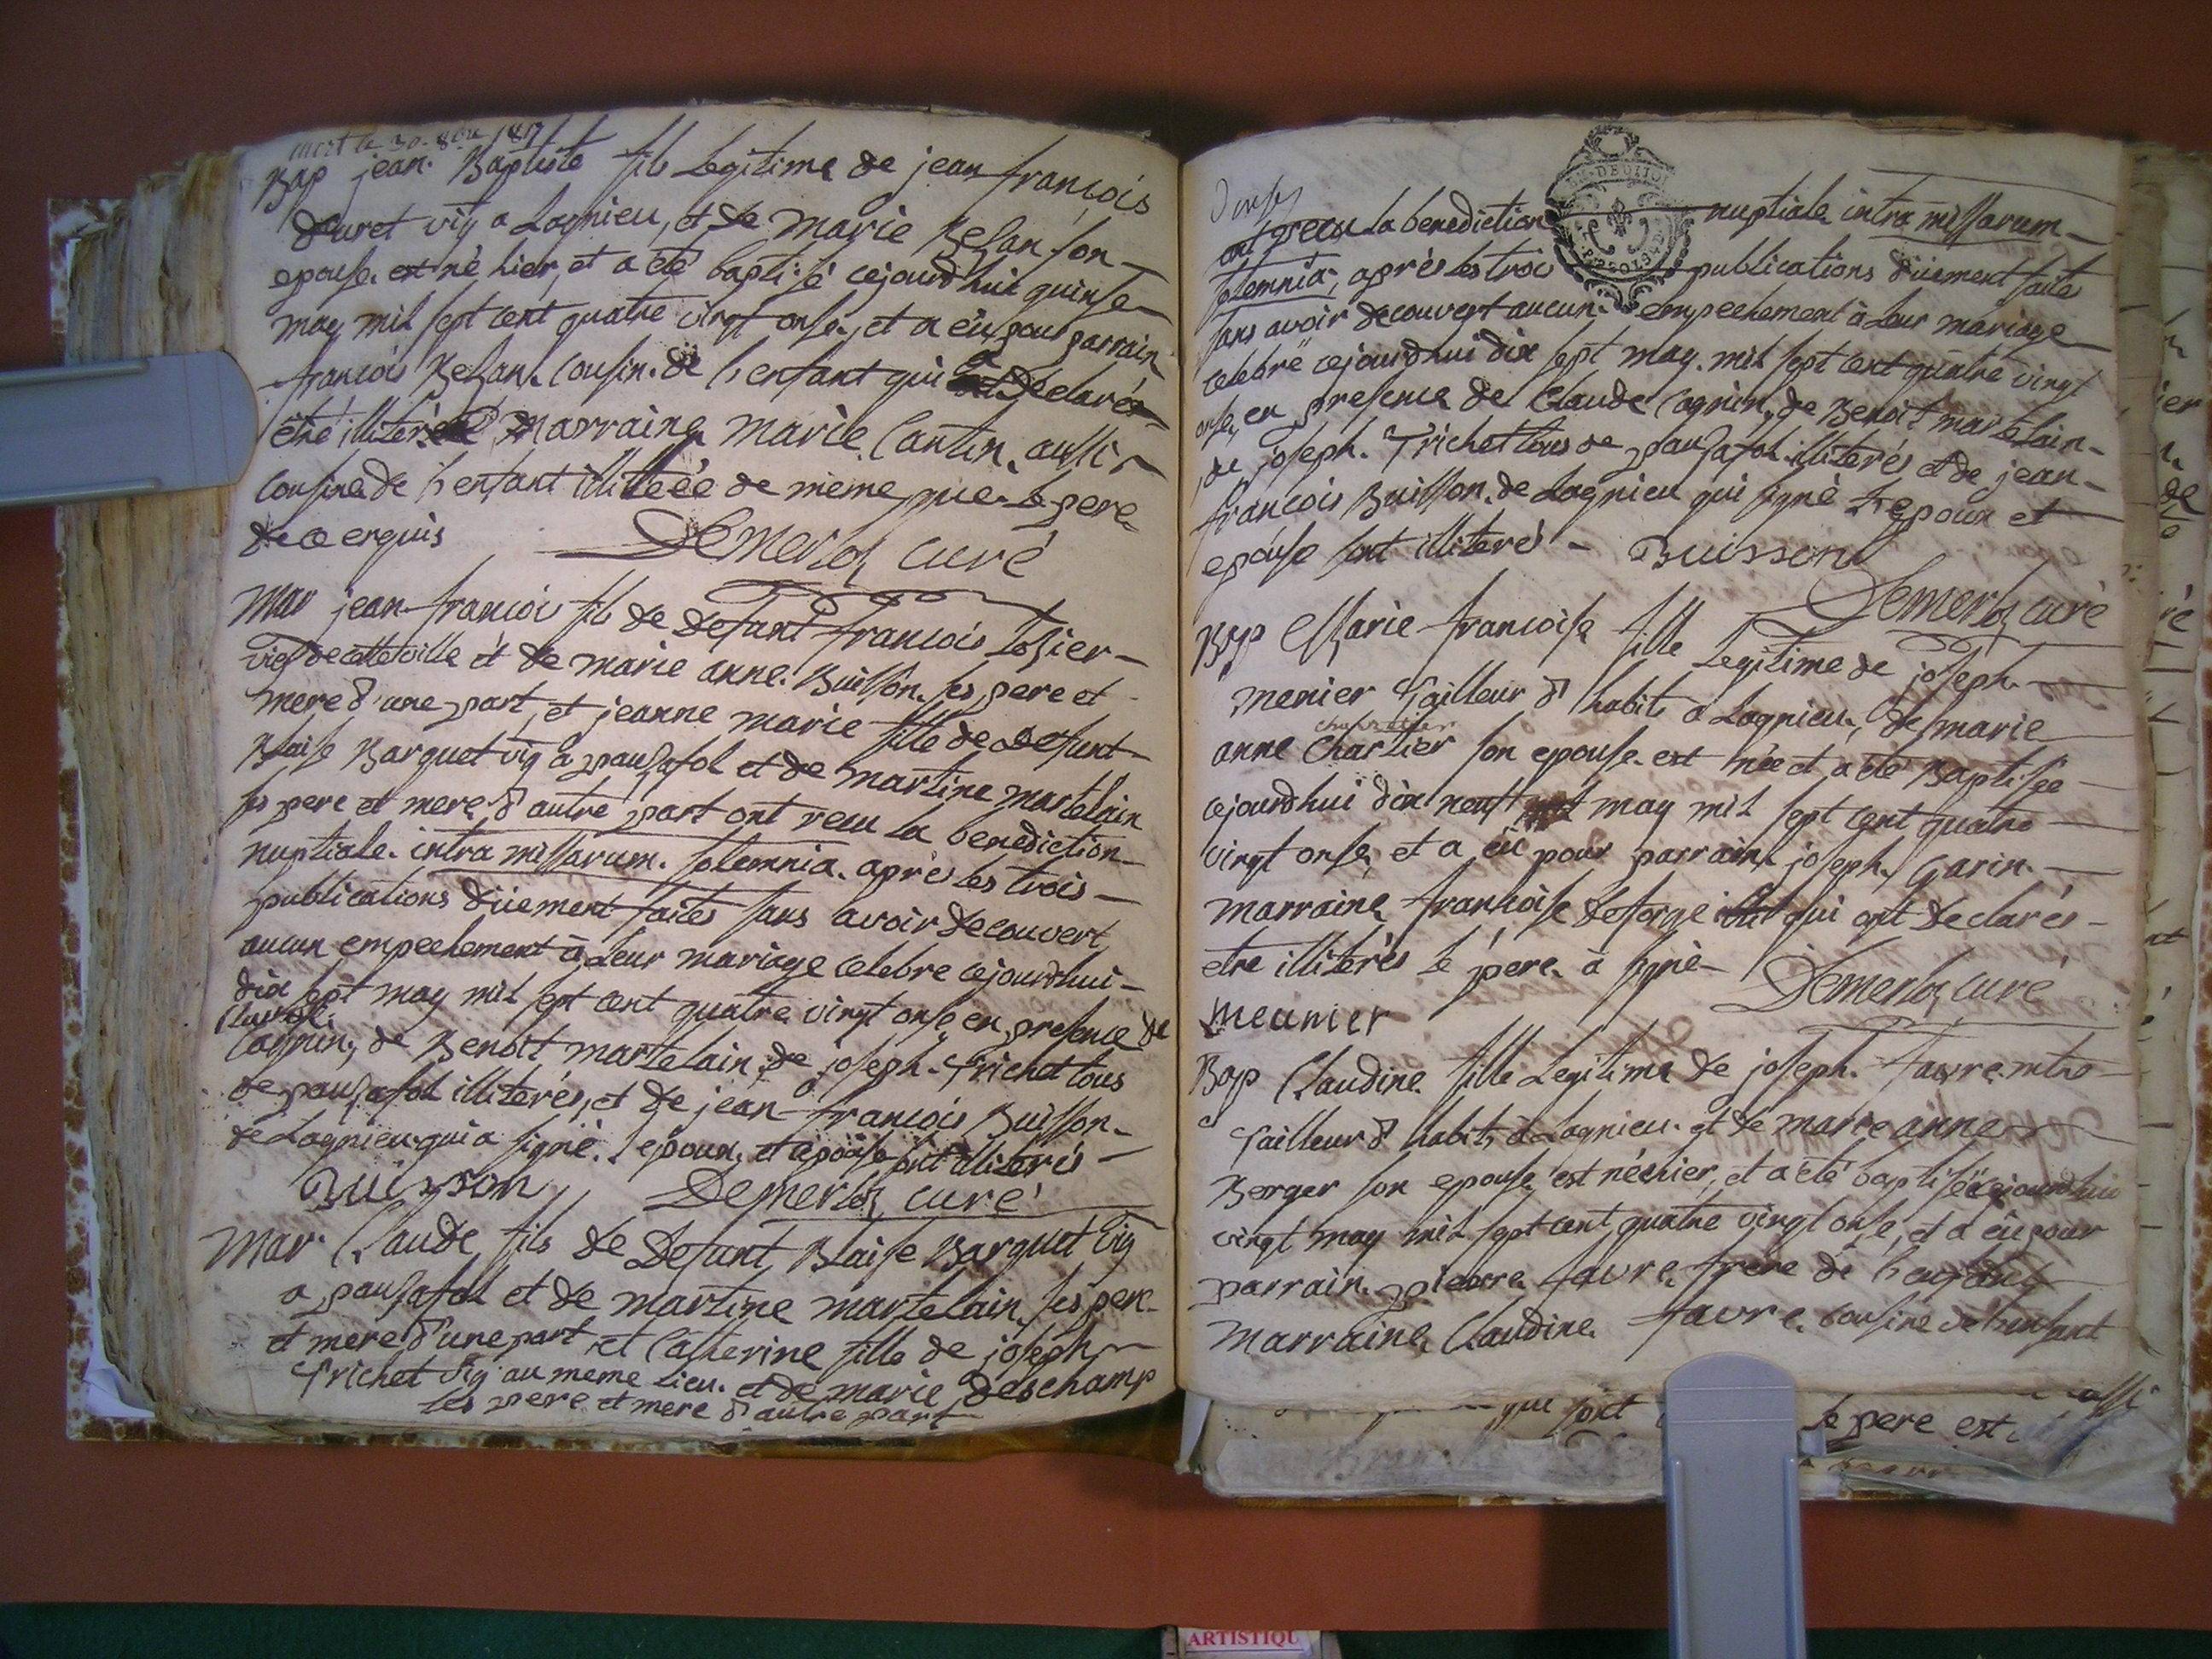 mort le 30. 8bre 1817
Bap jean Baptiste fils Legitime de jean françois
duret vig a Lagnieu, et de marie Besan son
epouse est né hier, et a été baptisé cejourdhui quinse
may mil sept cent quatre vingt onse, et a eü pour parrain
francois Besan Cousin de l'enfant qui a declarés
etre illiteré marraine marie Cantin aussi
Cousine de l'enfant illiteéé de même que le pere
de ce enquis Demerloz curé
Mar jean francois fils de Defunt francois Losier
vig de cette ville et de marie anne Buisson ses pere et
mere d'une part, et jeanne marie fille de defunt
Blaise Barquet vig a pausafol et de martine martelain
ses pere et mere d'autre part ont recu la benediction
nuptiale intra missarum solemnia après les trois
publications düement faites sans avoir decouvert
aucun empeehement à Leur mariage celebre cejourdhui
dix sept may mil sept cent quatre vingt onse en presence de
Claude
Cagnin, de Benoit martelain de joseph Trichet tous
de pausafol illiterés, et de jean francois Buisson
de Lagnieu qui a signé. l epoux, et epouse sont illiterés
Buisson Demerloz curé
Mar Claude fils de Defunt Blaise Barquet vig
a pausafol et de martine martelain ses pere
et mere d'une part et Catherine fille de joseph
Trichet vig au meme Lieu et de marie deschamp
ses pere et mere d'autre part
ont recu la benediction nuptiale intra missarum
solemnia, après les trois publications düement faite
sans avoir decouvert aucun empeehement à Leur mariage
celebré cejourdhui dix sept may mil sept cent quatre vingt
onse, en presence de Claude Cagnin, de Benoit martelain
de joseph Trichet tous de pausafol illiterés et de jean
francois Buisson de Lagnieu qui signé L'epoux et
epouse sont illiterés Buisson
Demerloz curé
Bap Marie francoise fille Legitime de joseph
menier Tailleur d'habits a Lagnieu, de marie
anne Chartier son epouse est née et a été Baptisée
cejourdhui dix neuf may mil sept cent quatre
vingt onse, et a eü pour parrain joseph Garin
marraine francoise deforge qui ont declarés
etre illiterés le pere à signé Demerloz curé
meunier
Bap Claudine fille Legitime de joseph favre mtre
Tailleur d'habits à Lagnieu et de marie anne
Berger son epouse est née hier, et a été baptisée cejourdhui
vingt may mil sept cent quatre vingt onse, et a eü pour
parrain pierre favre frère de l'enfant
marraine Claudine favre cousine de l'enfant
aussi
qui sont le pere est
ARTISTIQU